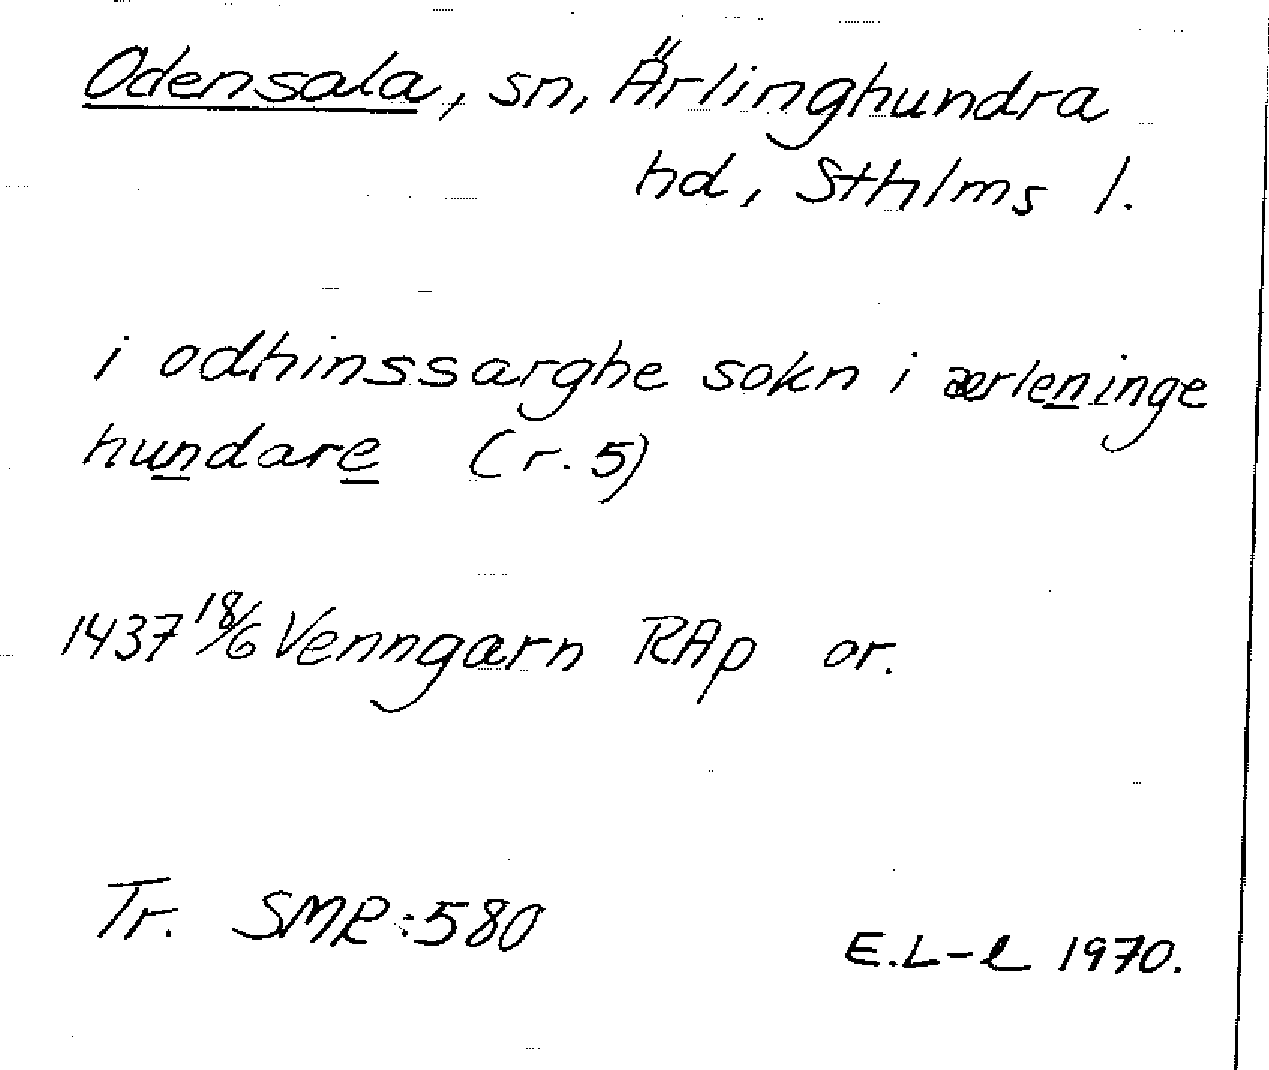 Odensala, sn, Ärlinghundra
hd, Sthlms l.
i odhinssarghe sokn i ærleninge
hundare (r. 5)
1437 18/6 Venngarn RAp or.
Tr. SMR:580
E.L-l 1970.